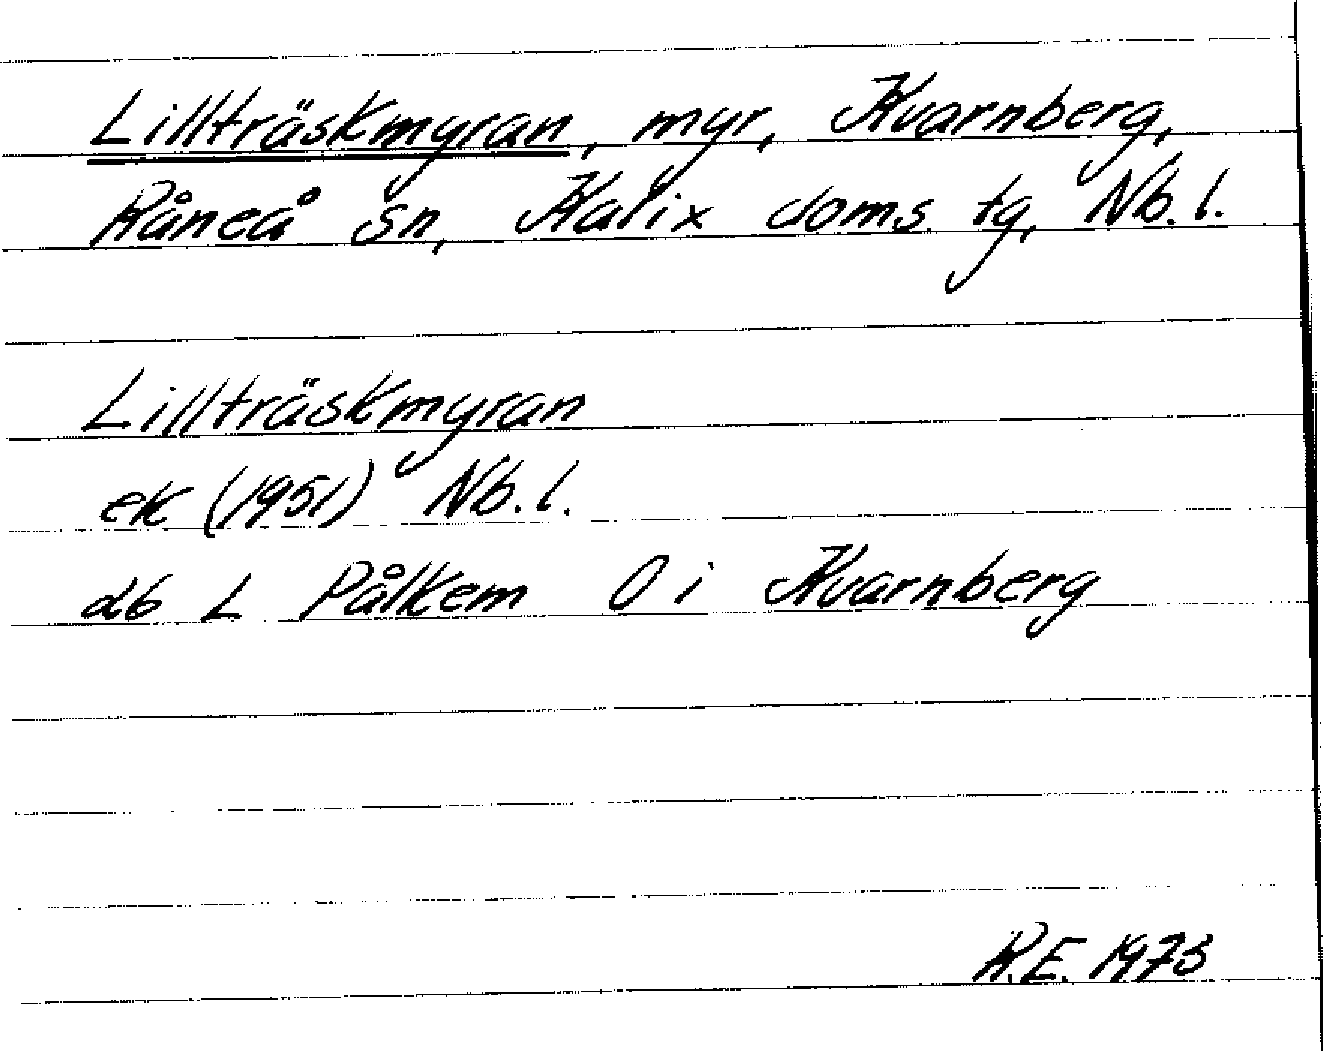 Lillträskmyran, myr, Kvarnberg,
Råneå sn, Kalix doms. tg, Nb. l.
Lillträskmyran
ek (1951) Nb. l.
db L Pålkem O i Kvarnberg
R.E. 1973